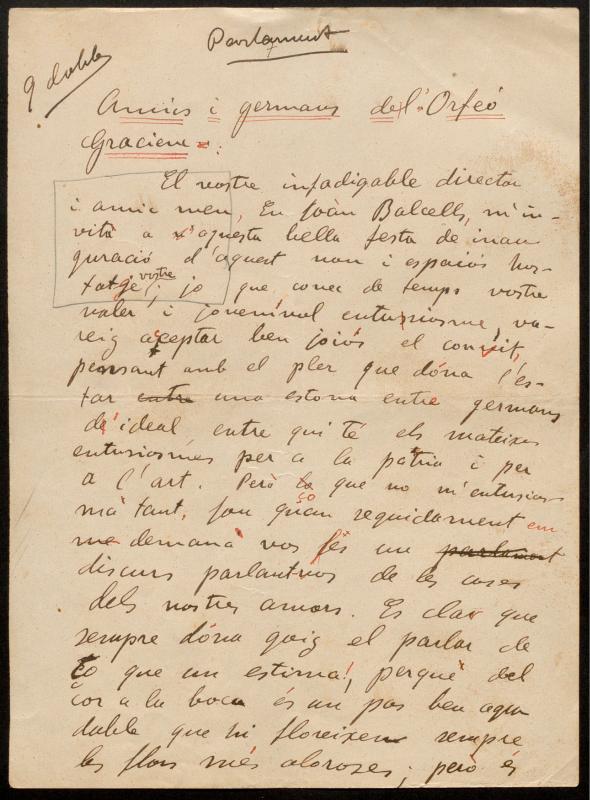 Parlament
9 dobles
Amics i germans de l'Orfeó
Gracienc:
El vostre infadigable director
i amic meu, En Joàn Balcells, m'in-
vità a aquesta bella festa de inau
guració d'aquest nou i espaiós hos-
tatge vostre; jo que, conec de temps vostre
valer i jovenívol entussiasme, va-
reig acceptar ben joiós el convit,
pensant amb el pler que dóna l'es-
tar entre una estona entre germans
de ideal entre qui té els mateixes
entusiasmes per a la patria i per
a l'art. Però lo ço que no m'entusias-
mà tant, fou quan seguidament em
me demanà vos fés un parlament
discurs parlantvos de les coses
dels nostres amors. Es clar que
sempre dóna goig el parlar de
ço que un estima!, perquè del
cor a la boca és un pas ben agra
dable que hi floreixen sempre
les flors més oloroses; però és